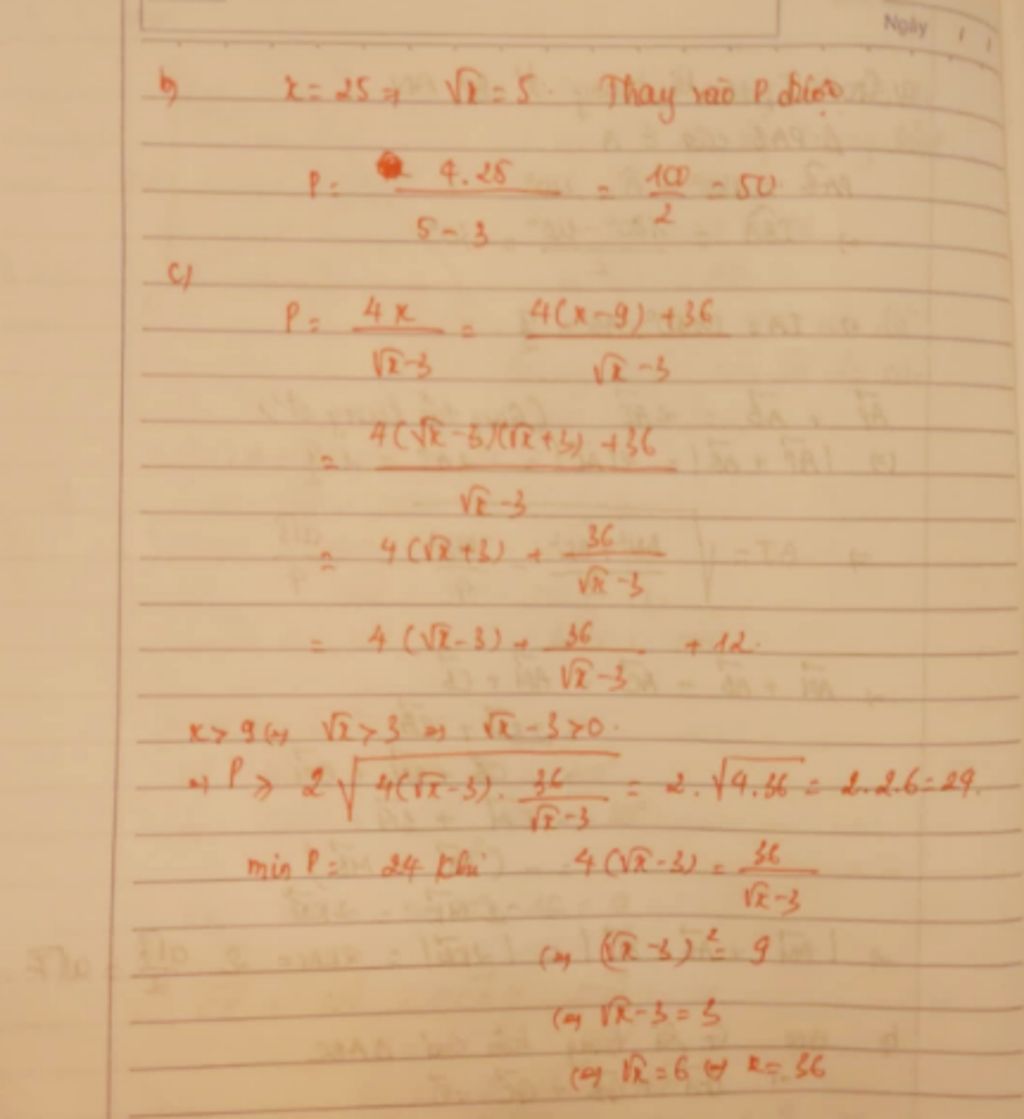 Ngày / /
b) x = 25 => √x = 5. Thay vào P được
P = 4.25 / 5-3 = 100/2 = 50
c)
P = 4x / √x-3 = 4(x-9)+36 / √x-3
= 4(√x-3)(√x+3)+36 / √x-3
= 4(√x+3) + 36 / √x-3
= 4(√x-3) + 36 / √x-3 + 12.
x > 9 <=> √x > 3 => √x - 3 > 0.
=> P ≥ 2√(4(√x-3) . 36 / √x-3) = 2.√4.36 = 2.2.6 = 24.
min P = 24 khi 4(√x-3) = 36 / √x-3
<=> (√x-3)² = 9
<=> √x-3 = 3
<=> √x = 6 <=> x = 36